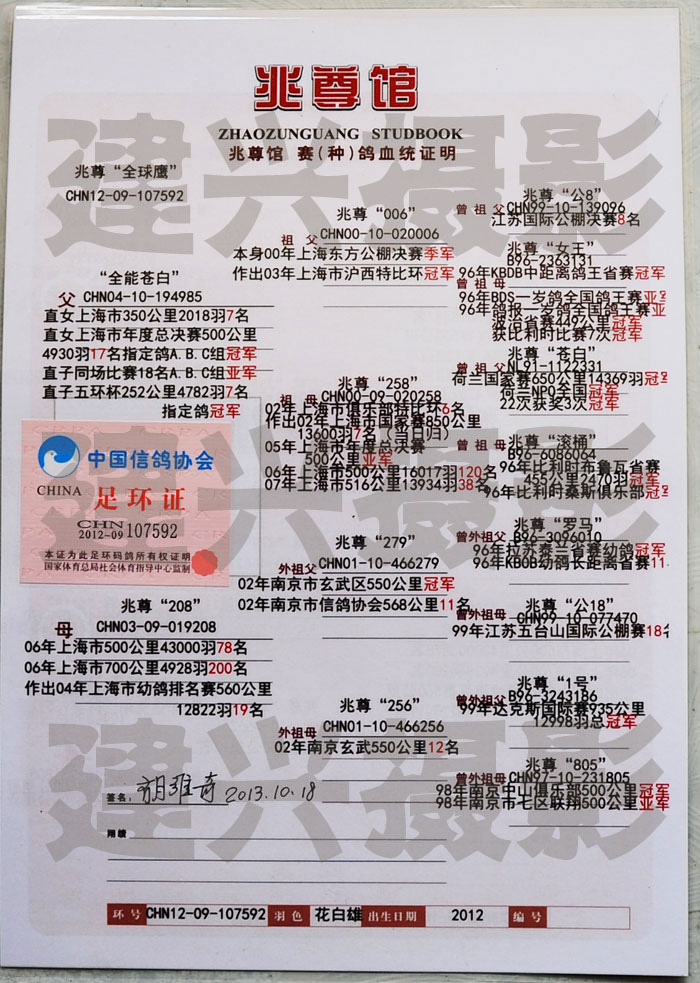 兆尊馆
ZHAOZUNGUANG STUDBOOK
兆尊馆 赛(种)鸽血统证明
建兴摄影
兆尊“全球鹰”
CHN12-09-107592
“全能苍白”
父 CHN04-10-194985
直女上海市350公里2018羽7名
直女上海市年度总决赛500公里
4930羽17名指定鸽A.B.C组冠军
直子同场比赛18名A.B.C组亚军
直子五环杯252公里4782羽7名
指定鸽冠军
中国信鸽协会
CHINA 足环证
CHN
2012-09 107592
本证为此足环码鸽所有权证明
国家体育总局社会体育指导中心监制
兆尊“208”
母 CHN03-09-019208
06年上海市500公里43000羽78名
06年上海市700公里4928羽200名
作出04年上海市幼鸽排名赛560公里
12822羽19名
兆尊“006”
祖父 CHN00-10-020006
本身00年上海东方公棚决赛季军
作出03年上海市沪西特比环冠军
兆尊“258”
祖母 CHN00-09-020258
02年上海市俱乐部特比环6名
作出02年上海市国家赛850公里
13600羽7名(当日归)
05年上海市年度总决赛
500公里亚军
06年上海市500公里16017羽120名
07年上海市516公里13934羽38名
建兴摄影
兆尊“279”
外祖父 CHN01-10-466279
02年南京市玄武区550公里冠军
02年南京市信鸽协会568公里11名
兆尊“256”
外祖母 CHN01-10-466256
02年南京玄武550公里12名
兆尊“公8”
曾祖父 CHN99-10-139096
江苏国际公棚决赛8名
兆尊“女王”
B96-2363131
96年KBDB中距离鸽王省赛冠军
曾祖母
96年BDS一岁鸽全国鸽王赛亚军
96年鸽报一岁鸽全国鸽王赛亚军
波治省赛449公里冠军
获比利时比赛7次冠军
兆尊“苍白”
曾祖父 NL91-1122331
荷兰国家赛650公里14369羽冠军
荷兰NPO全国冠军
22次获奖3次冠军
兆尊“滚桶”
曾祖母 B96-6086064
96年比利时布鲁瓦省赛
455公里2470羽冠军
96年比利时桑斯俱乐部冠军
兆尊“罗马”
B96-3096010
96年拉苏泰兰省赛幼鸽冠军
96年KBOB幼鸽长距离省赛11
兆尊“公18”
曾外祖母 CHN99-10-077470
99年江苏五台山国际公棚赛18名
兆尊“1号”
曾外祖父 B96-3243186
99年达克斯国际赛935公里
12998羽总冠军
兆尊“805”
曾外祖母 CHN97-10-231805
98年南京中山俱乐部500公里冠军
98年南京市七区联翔500公里亚军
建兴摄影
签名: 2013.10.18
环号 CHN12-09-107592 羽色 花白雄 出生日期 2012 编号